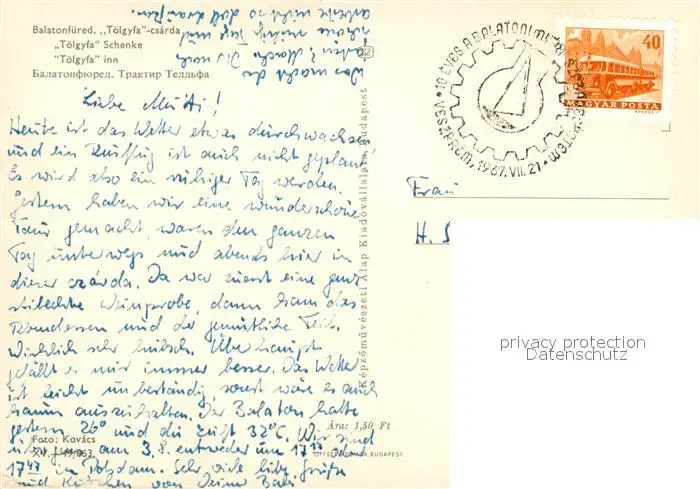 Balatonfüred. „Tölgyfa"-csárda
"Tölgyfa" Schenke
"Tölgyfa" inn
Балатонфюред. Трактир Телдьфа
Liebe Mutti!
Heute ist das Wetter etwas durchwachsen
und ein Ausflug ist auch nicht geplant.
Es wird also ein ruhiger Tag werden.
Gestern haben wir eine wunderschöne
Tour gemacht, waren den ganzen
Tag unterwegs und abends hier in
dieser csárda. Da war zuerst eine ganz
stilechte Weinprobe, dann kam das
Abendessen und der gemütliche Teil.
Wirklich sehr hübsch. Überhaupt
gefällt es mir immer besser. Das Wetter
ist leicht unbeständig, sonst wäre es auch
kaum auszuhalten. Der Balaton hatte
gestern 26° und die Luft 32°C. Wir sind
am 3.8. entweder um 17
17 47 in Potsdam. Sehr viele liebe Grüße
und Küßchen von Deiner
Was macht der
Mach Dir noch
schöne Tage und
arbeite nicht so doll draußen.
Foto: Kovács
Ára: 1,50 Ft
BUDAPEST
Képzőművészeti Alap Kiadóvállalata, Budapest
10 ÉVES A BALATONI
VESZPRÉM, 1967. VII. 21
40
MAGYAR POSTA
Frau
H. S
privacy protection
Datenschutz